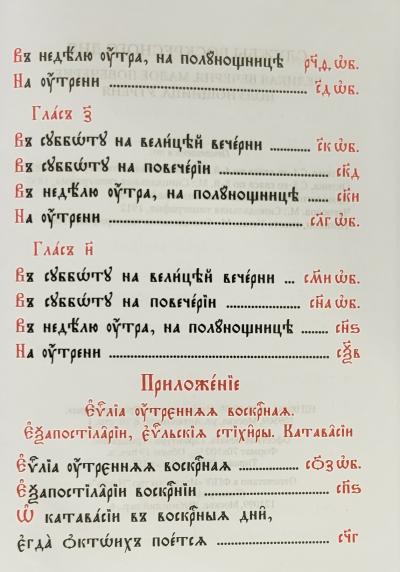 Въ недѣ́лю оу҆́тра, на полꙋ́нощницѣ рч҃ѳ. ѡб.
На оу҆́трени ............ с҃д ѡб.
Гла́съ з҃
Въ сꙋббѡ́тꙋ на вели́цѣй вече́рни ........ с҃к ѡб.
Въ сꙋббѡ́тꙋ на повече́рїи ............ ск҃д
Въ недѣ́лю оу҆́тра, на полꙋ́нощницѣ ..... ск҃и
На оу҆́трени ............................ сл҃г ѡб.
Гла́съ и҃
Въ сꙋббѡ́тꙋ на вели́цѣй вече́рни ... см҃и ѡб.
Въ сꙋббѡ́тꙋ на повече́рїи ............ сн҃а ѡб.
Въ недѣ́лю оу҆́тра, на полꙋ́нощницѣ ..... сн҃ѕ
На оу҆́трени ............................ сѯ҃в
Приложе́нїе
Е҆ѵⷢ҇лїа оу҆́треннѧѧ воскрⷭ҇наѧ.
Е҆ѯапостїла́рїи, е҆ѵⷢ҇льскїѧ стїхи̑ры. Катава̑сїи
Е҆ѵⷢ҇лїа оу҆́треннѧѧ воскрⷭ҇наѧ ............ со҃з ѡб.
Е҆ѯапостїла́рїи воскрⷭ҇нїи ............ сп҃ѕ
Ѽ катава́сїи въ воскрⷭ҇ныѧ днѝ,
е҆гда̀ ѻ҆ктѡ́ихъ пое́тсѧ ............ сч҃г